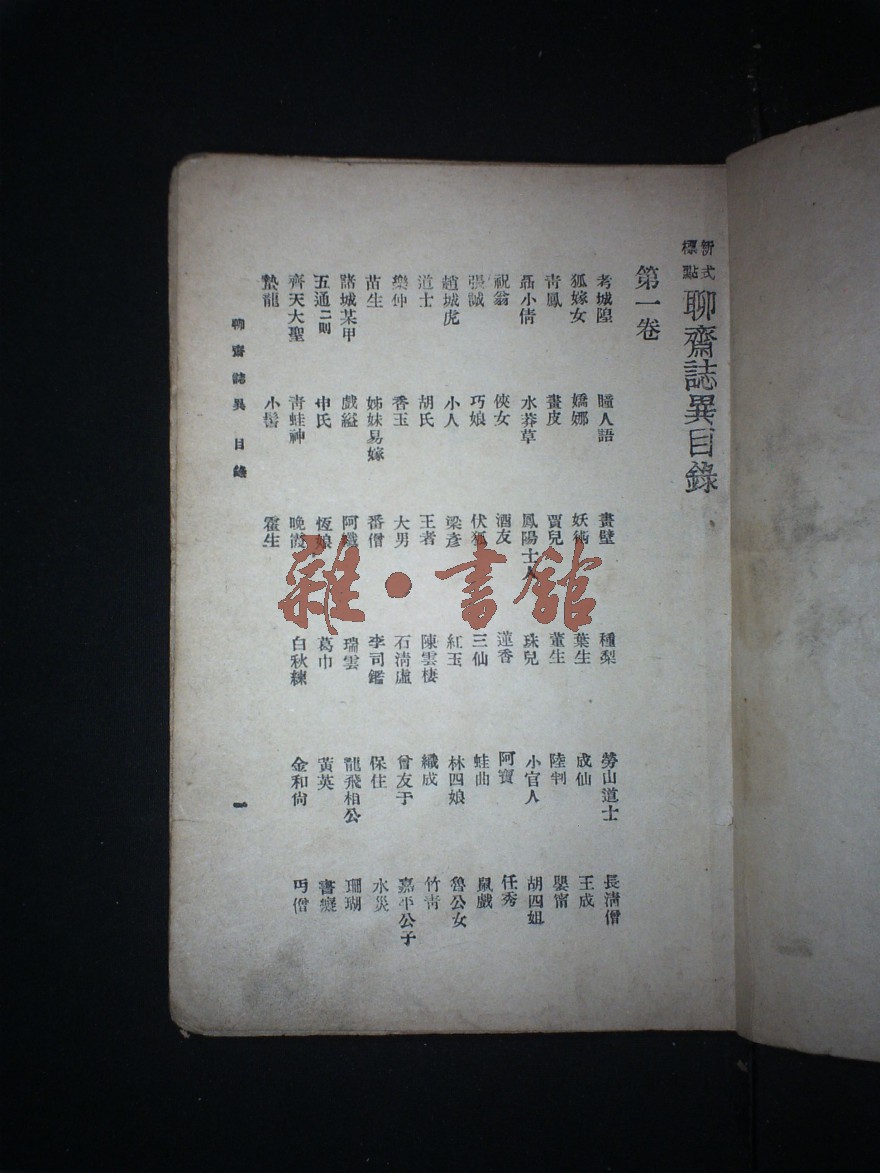 新式標點 聊齋誌異目錄
第一卷
考城隍 瞳人語 畫壁 種梨 勞山道士 長清僧
狐嫁女 嬌娜 妖術 葉生 成仙 王成
青鳳 畫皮 賈兒 董生 陸判 嬰甯
聶小倩 水莽草 鳳陽士人 珠兒 小官人 胡四姐
祝翁 俠女 酒友 蓮香 阿寶 任秀
張誠 巧娘 伏狐 三仙 蛙曲 鼠戲
趙城虎 小人 梁彥 紅玉 林四娘 魯公女
道士 胡氏 王者 陳雲棲 織成 竹青
樂仲 香玉 大男 石清虛 曾友于 嘉平公子
苗生 姊妹易嫁 番僧 李司鑑 保住 水災
諸城某甲 戲縊 阿纖 瑞雲 龍飛相公 珊瑚
五通二則 申氏 恆娘 葛巾 黃英 書癡
齊天大聖 青蛙神 晚霞 白秋練 金和尙 丐僧
蟄龍 小髻 霍生
聊齋誌異 目錄 一
雜·書館